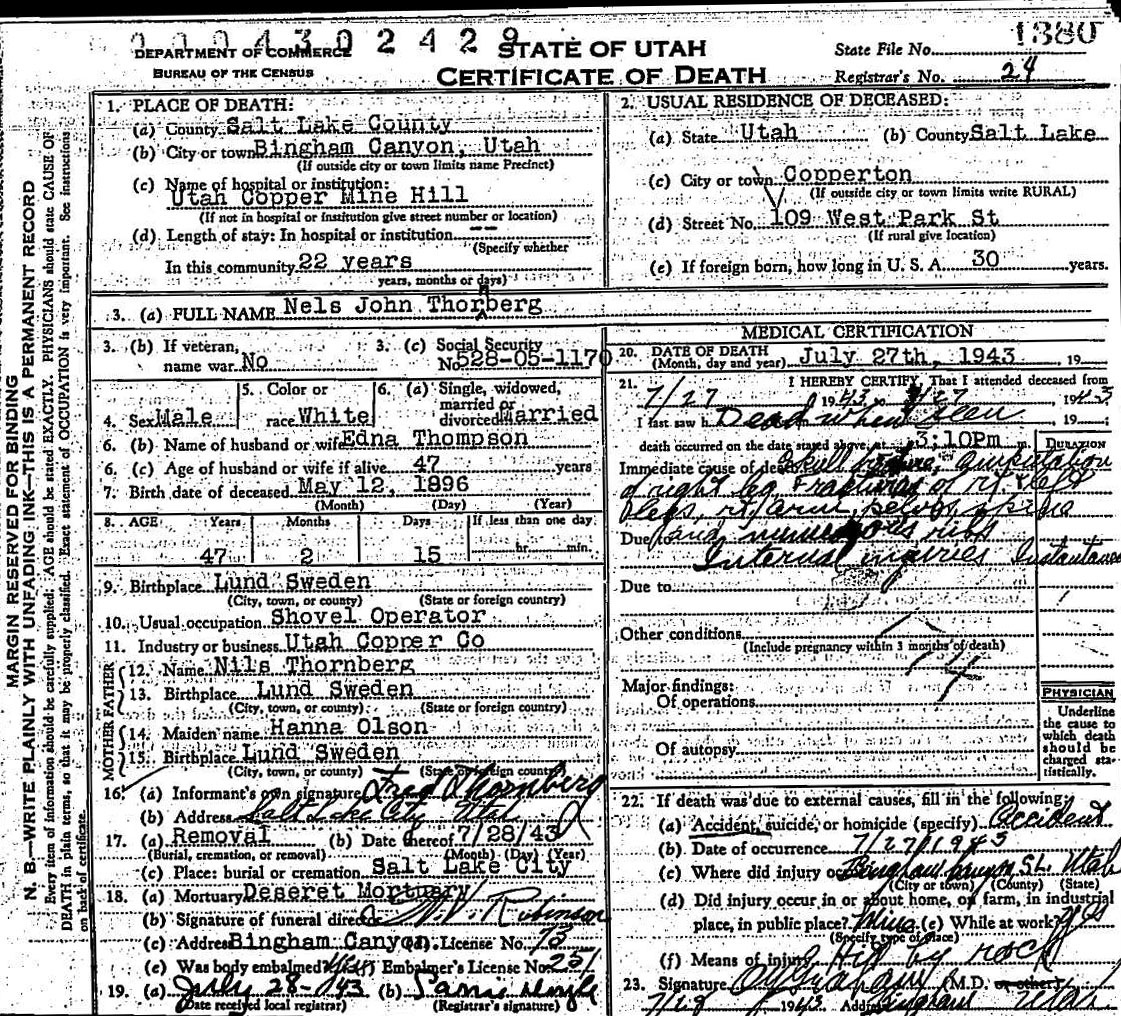 0 0 0 4 3 0 2 4 2 9
1380
DEPARTMENT OF COMMERCE
BUREAU OF THE CENSUS
STATE OF UTAH
CERTIFICATE OF DEATH
State File No.
Registrar's No. 24
MARGIN RESERVED FOR BINDING
N. B.—WRITE PLAINLY WITH UNFADING INK—THIS IS A PERMANENT RECORD
Every item of information should be carefully supplied. AGE should be stated EXACTLY. PHYSICIANS should state CAUSE OF
DEATH in plain terms, so that it may be properly classified. Exact statement of OCCUPATION is very important. See instructions
on back of certificate.
1. PLACE OF DEATH:
(a) County Salt Lake County
(b) City or town Bingham Canyon, Utah
(If outside city or town limits name Precinct)
(c) Name of hospital or institution:
Utah Copper Mine Hill
(If not in hospital or institution give street number or location)
(d) Length of stay: In hospital or institution --
(Specify whether
In this community 22 years
years, months or days)
2. USUAL RESIDENCE OF DECEASED:
(a) State Utah (b) County Salt Lake
(c) City or town Copperton
(If outside city or town limits write RURAL)
(d) Street No. 109 West Park St
(If rural give location)
(e) If foreign born, how long in U. S. A. 30 years.
3. (a) FULL NAME Nels John Thorberg
3. (b) If veteran,
name war No
3. (c) Social Security
No. 528-05-1170
4. Sex Male
5. Color or
race White
6. (a) Single, widowed,
married or
divorced Married
6. (b) Name of husband or wife Edna Thompson
6. (c) Age of husband or wife if alive 47 years
7. Birth date of deceased May 12, 1896
(Month) (Day) (Year)
8. AGE Years Months Days If less than one day
47 2 15 hr. min.
9. Birthplace Lund Sweden
(City, town, or county) (State or foreign country)
10. Usual occupation Shovel Operator
11. Industry or business Utah Copper Co
MOTHER FATHER
12. Name Nils Thornberg
13. Birthplace Lund Sweden
(City, town, or county) (State or foreign country)
14. Maiden name Hanna Olson
15. Birthplace Lund Sweden
(City, town, or county) (State or foreign country)
16. (a) Informant's own signature Fred Thornberg
(b) Address Salt Lake City Utah
17. (a) Removal (b) Date thereof 7/28/43
(Burial, cremation, or removal) (Month) (Day) (Year)
(c) Place: burial or cremation Salt Lake City
18. (a) Mortuary Deseret Mortuary
(b) Signature of funeral director Robinson
(c) Address Bingham Canyon (d) License No. 73
(e) Was body embalmed (f) Embalmer's License No. 251
19. (a) July 28-1943 (b)
(Date received local registrar) (Registrar's signature)
MEDICAL CERTIFICATION
20. DATE OF DEATH
(Month, day and year) July 27th, 1943 19
21. I HEREBY CERTIFY, That I attended deceased from
7/27 1943 to 7/27, 1943
I last saw h Dead when seen, 19
death occurred on the date stated above, at 3:10Pm m.
DURATION
Immediate cause of death Skull amputation
of right leg Fractures of rt. & left
legs, rt. arm, pelvis, spine
Due to and numerous ribs
Internal injuries Instantaneous
Due to
Other conditions
(Include pregnancy within 3 months of death)
Major findings:
Of operations
Of autopsy
PHYSICIAN
Underline
the cause to
which death
should be
charged sta-
tistically.
22. If death was due to external causes, fill in the following:
(a) Accident, suicide, or homicide (specify) Accident
(b) Date of occurrence 7/27/1943
(c) Where did injury occur Bingham Canyon SL. Utah
(City or town) (County) (State)
(d) Did injury occur in or about home, on farm, in industrial
place, in public place? Mine (e) While at work? Yes
(Specify type of place)
(f) Means of injury Hit by rock
23. Signature (M.D. or other)
1943 Address Bingham Utah